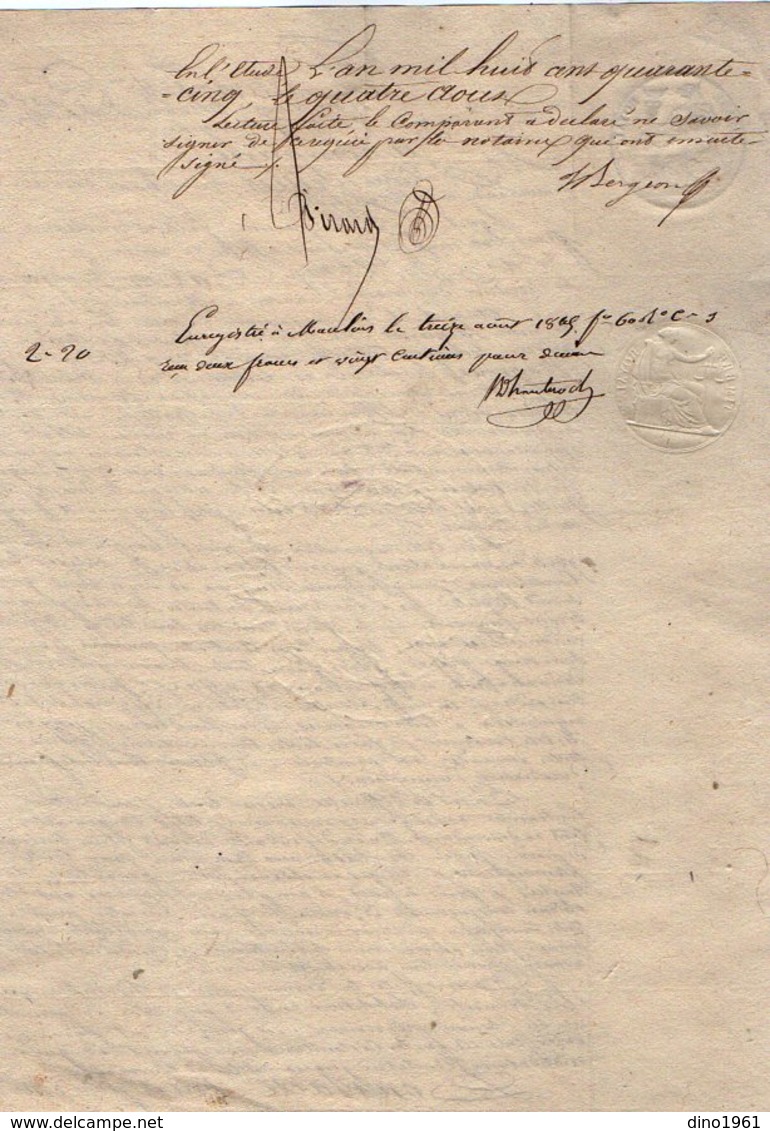 En l'Etude L'an mil huit cent quarante=
=cinq le quatre Aout
Lecture faite, le Comparant a declaré ne savoir
signer de ce requis par les notaires qui ont ensuite
signé
Bergeon
Girard
Enregistré à Moulins le treize aout 1845 f° 60 R° C.
2-20
reçu deux francs et vingt centimes pour décime
delcampe.net
dino1961